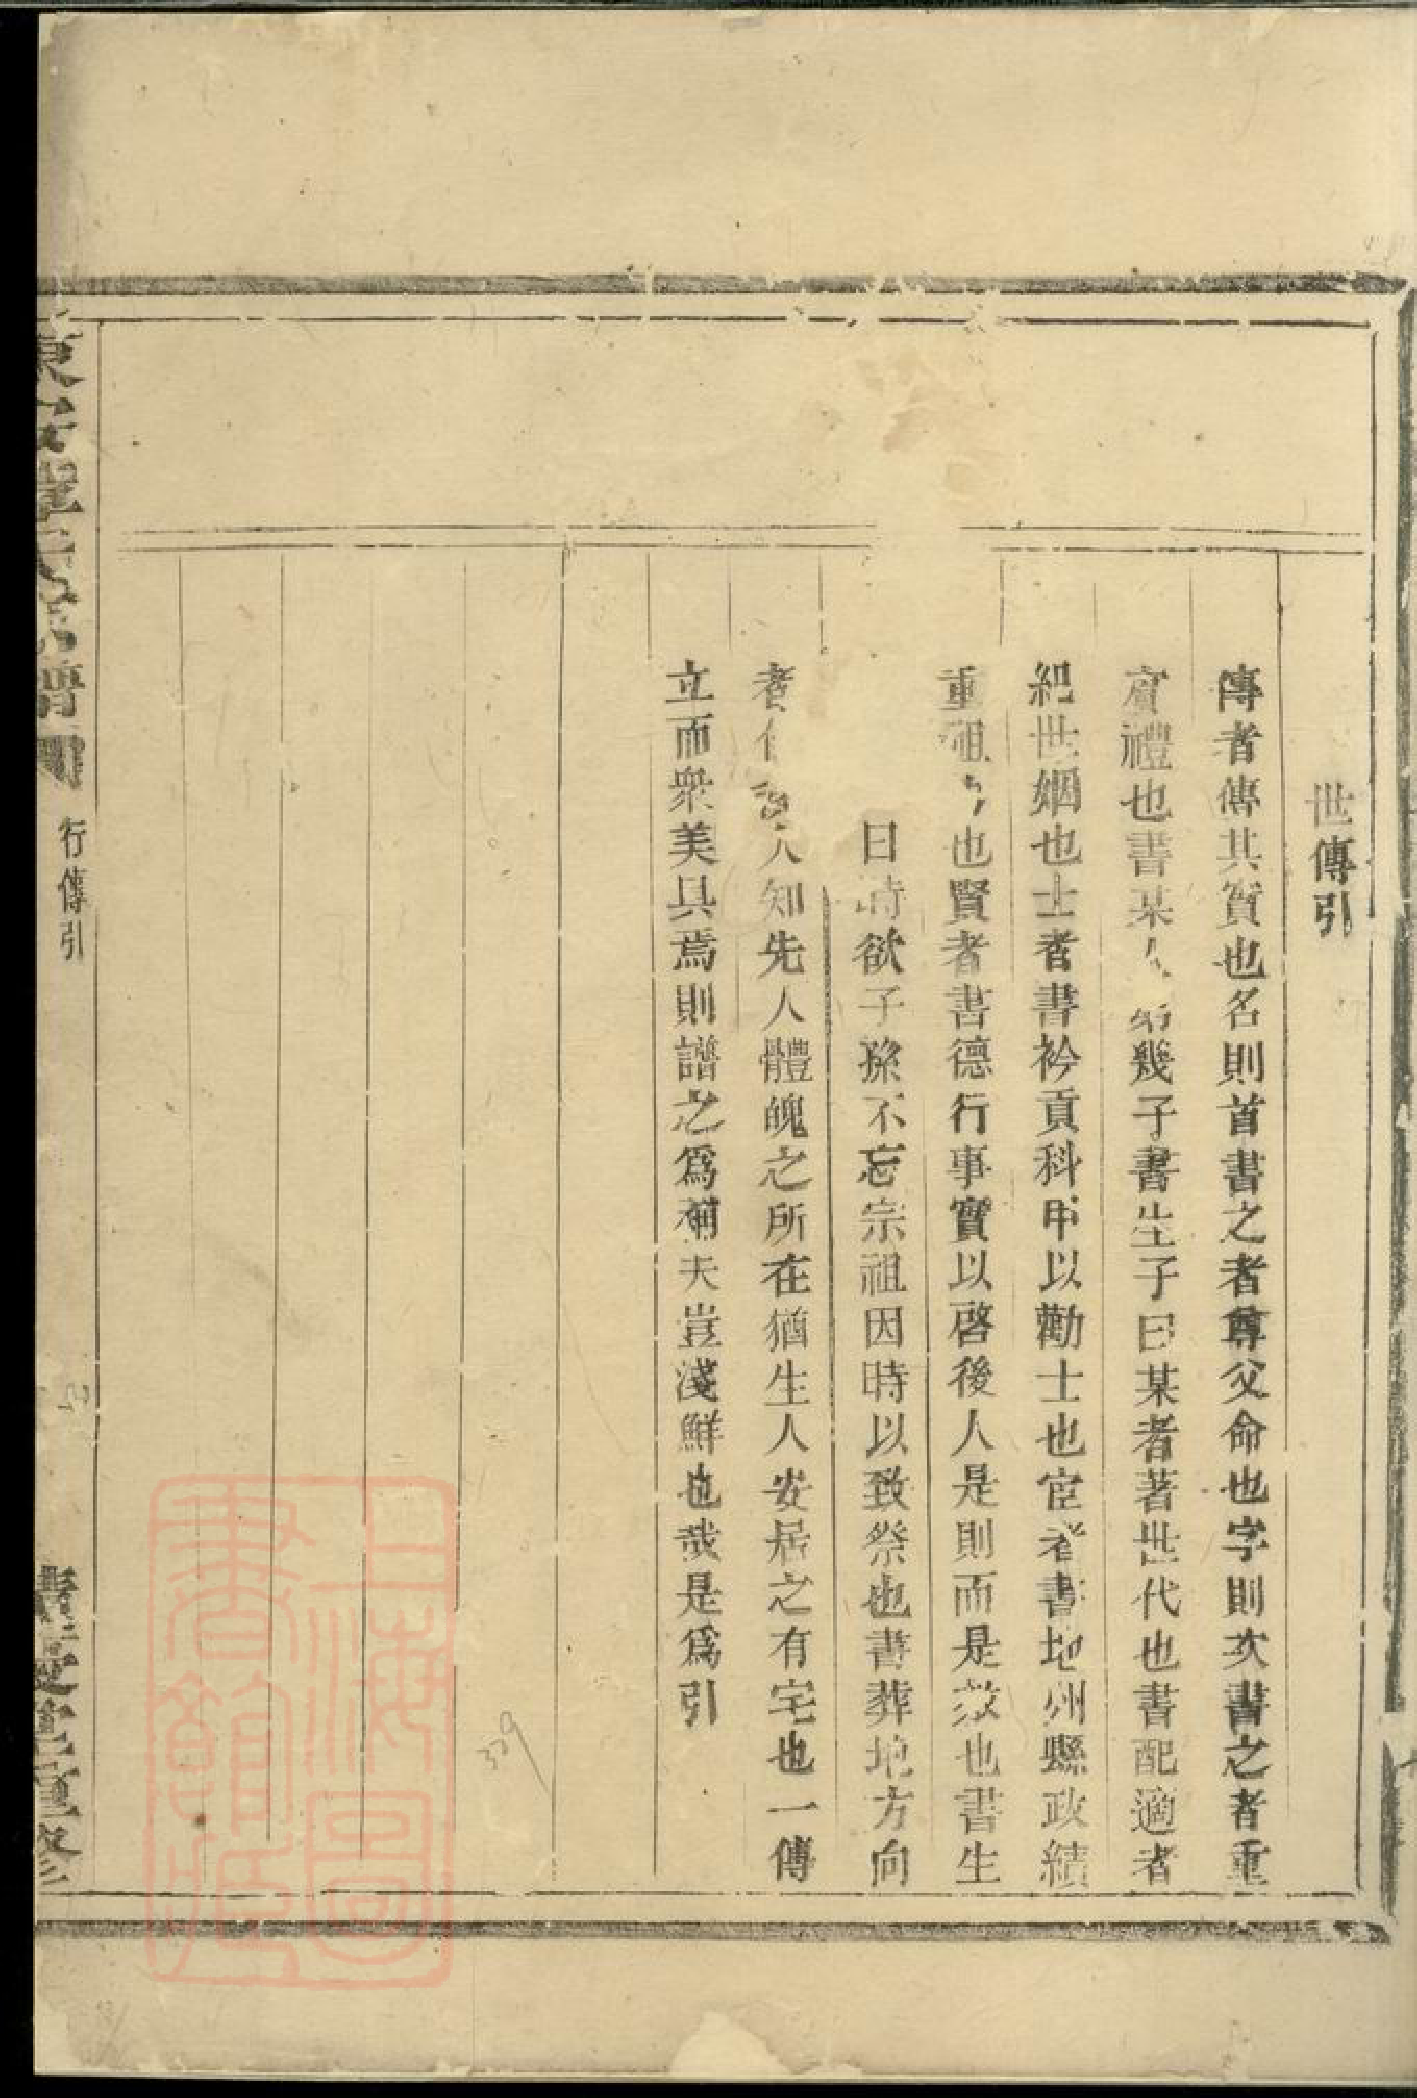 世傳引
傳者傳其實也名則首書之者尊父命也字則次書之者重
賓禮也書某人 第幾子書生子曰某者著世代也書配適者
紀世姻也士者書衿貢科甲以勸士也宦者書地州縣政績
重祖 也賢者書德行事實以啓後人是則而是效也書生
日時欲子孫不忘宗祖因時以致祭也書葬地方向
者 人知先人體魄之所在猶生人安居之有宅也一傳
立而衆美具焉則譜之爲補夫豈淺鮮也哉是爲引
行傳引
上海圖書館藏
339